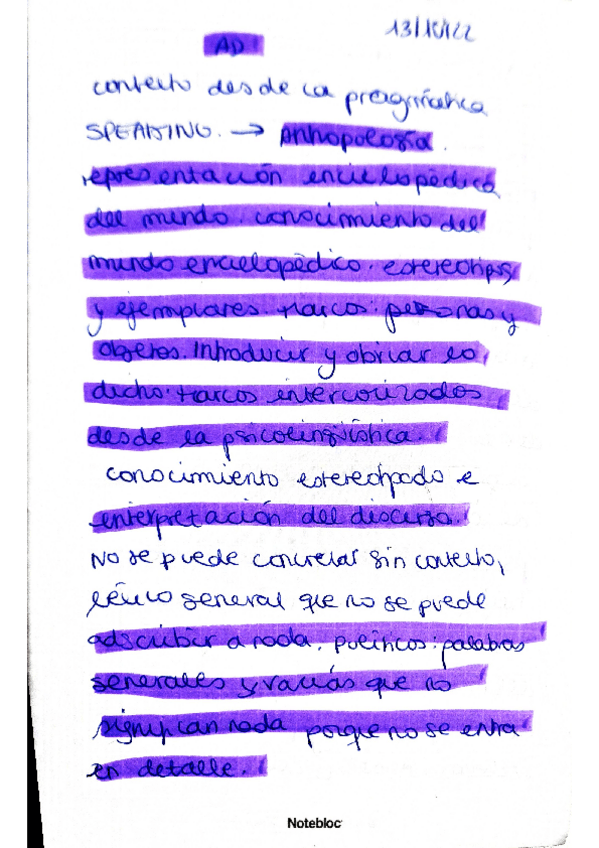 13/10/22
AD
contexto desde la pragmática
SPEAKING. → Antropología.
representación enciclopédica
del mundo. conocimiento del
mundo enciclopédico. estereotipos
y ejemplares. marcos: personas y
objetos. Introducir y obviar lo
dicho. marcos interiorizados
desde la psicolingüística.
conocimiento estereotipado e
interpretación del discurso.
No se puede concretar sin contexto,
léxico general que no se puede
adscribir a nada. políticos: palabras
generales y vacías que no
significan nada porque no se entra
en detalle.
Notebloc